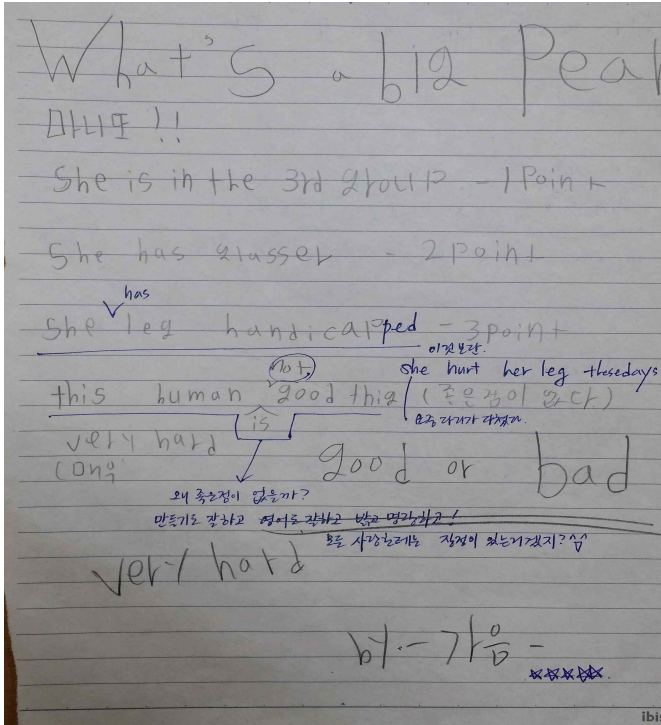 What's a big Pea
마니또!!
She is in the 3rd group - 1 Point
She has glasser - 2 point
has
She leg handicapped - 3 point
이것보단.
not
she hurt her leg thesedays
this human good thig (좋은점이 없다.)
is
요즘 다리가 다쳤다.
very hard
good or bad
왜 좋은점이 없을까?
만들기도 잘하고 영어도 잘하고 밝고 명랑하고!
모든 사람한테는 장점이 있는거겠지? ^^
very hard
by.-가을-
ibis